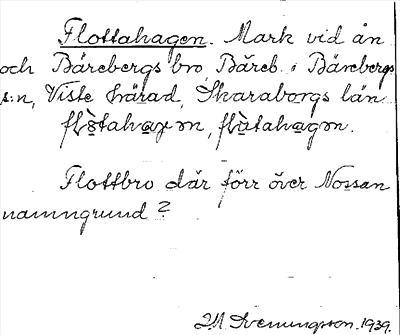 Flottahagen. Mark vid ån
och Bärebergs bro, Båreb. i Bärebergs
s:n, Viste härad, Skaraborgs län.
Flottbro där förr över Nossan
namngrund?
1939.